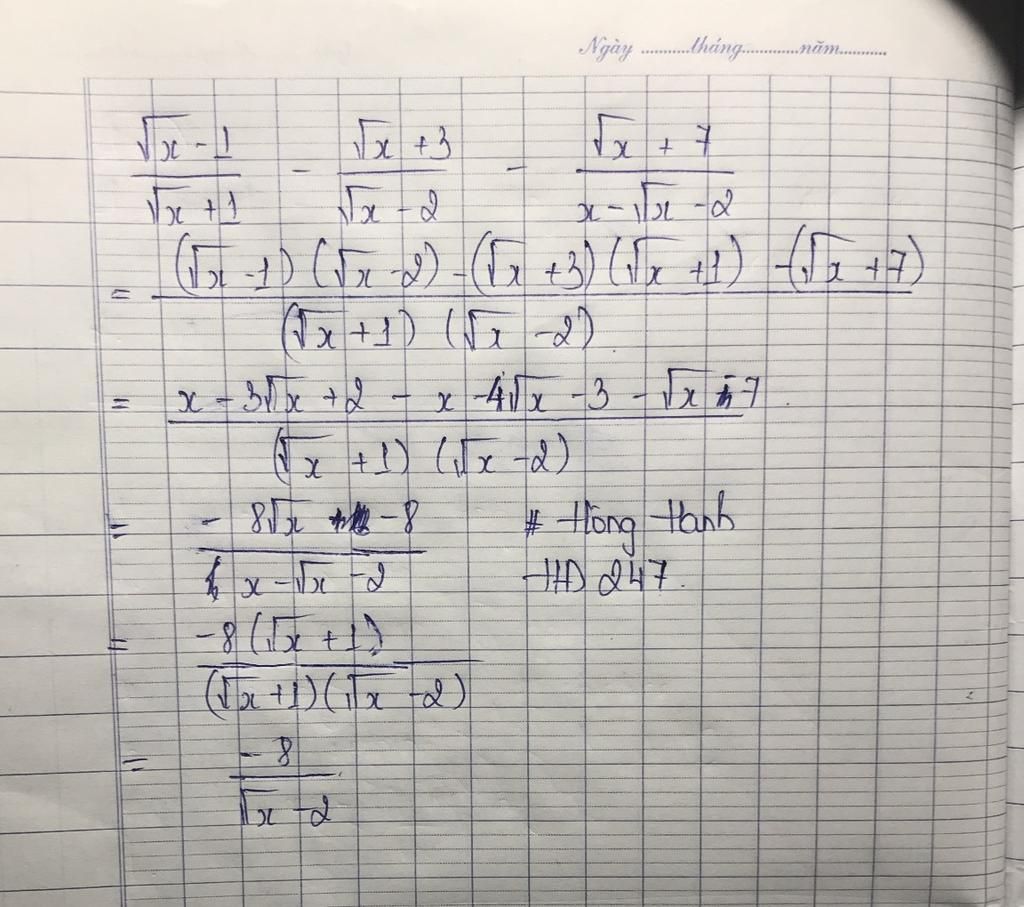 Ngày ...........tháng............năm..........
(√x - 1)/(√x + 1) - (√x + 3)/(√x - 2) - (√x + 7)/(x - √x - 2)
= ((√x - 1)(√x - 2) - (√x + 3)(√x + 1) - (√x + 7))/((√x + 1)(√x - 2))
= (x - 3√x + 2 - x - 4√x - 3 - √x - 7)/((√x + 1)(√x - 2))
= (- 8√x - 8)/(x - √x - 2)
# Hồng Hanh
HD 247.
= (-8(√x + 1))/((√x + 1)(√x - 2))
= (- 8)/(√x - 2)